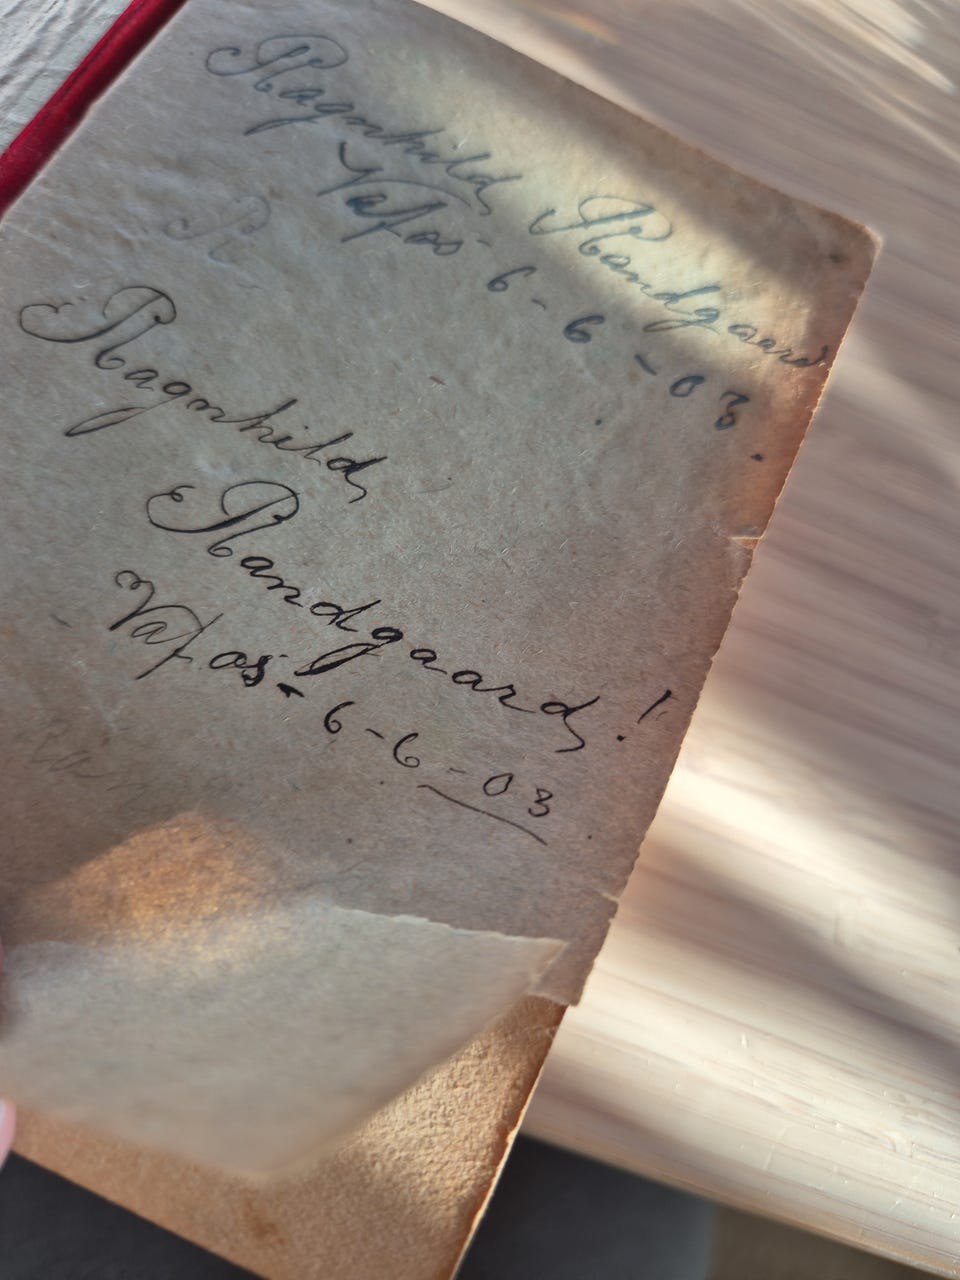 Ragnhild Randgaard
Vafos - 6 - 6 - 03.
R
Ragnhild
Randgaard!
Vafos - 6 - 6 - 03